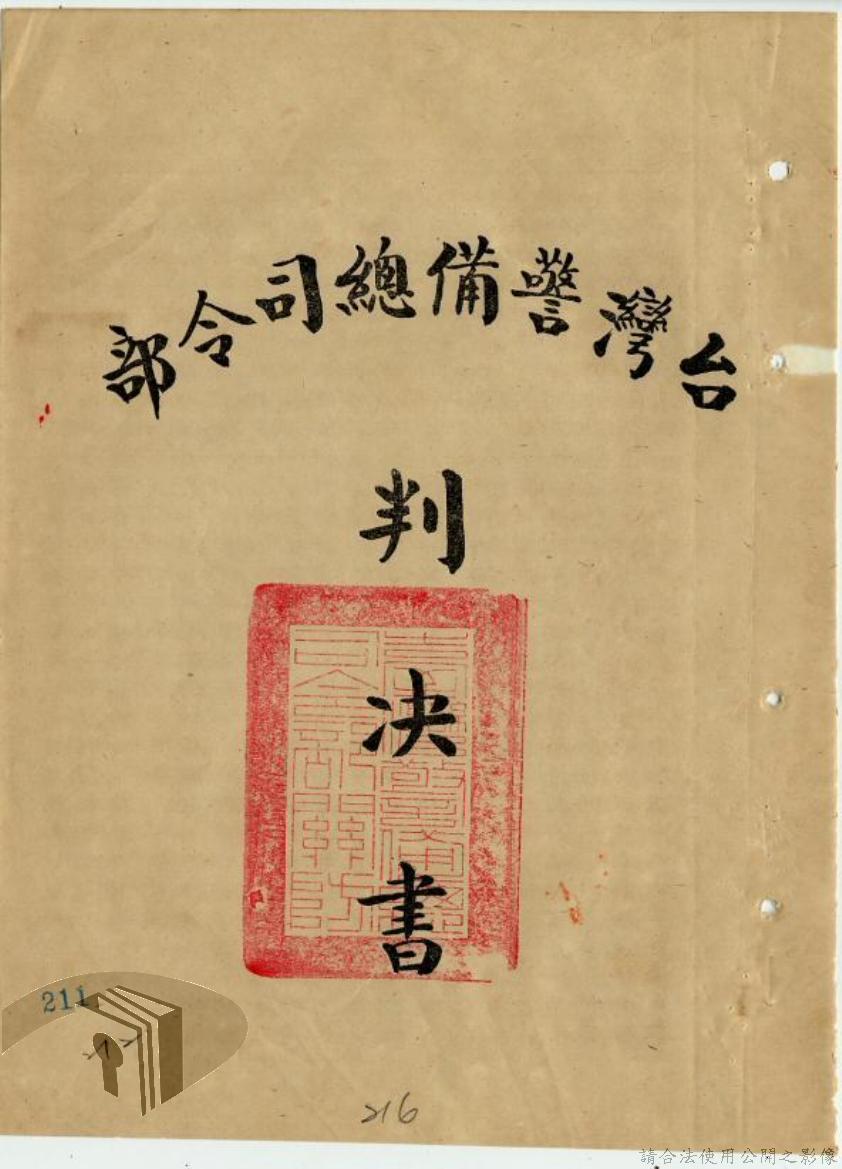 台灣警備總司令部
判
决
書
臺灣警備總
司令部關防
211
216
請合法使用公開之影像